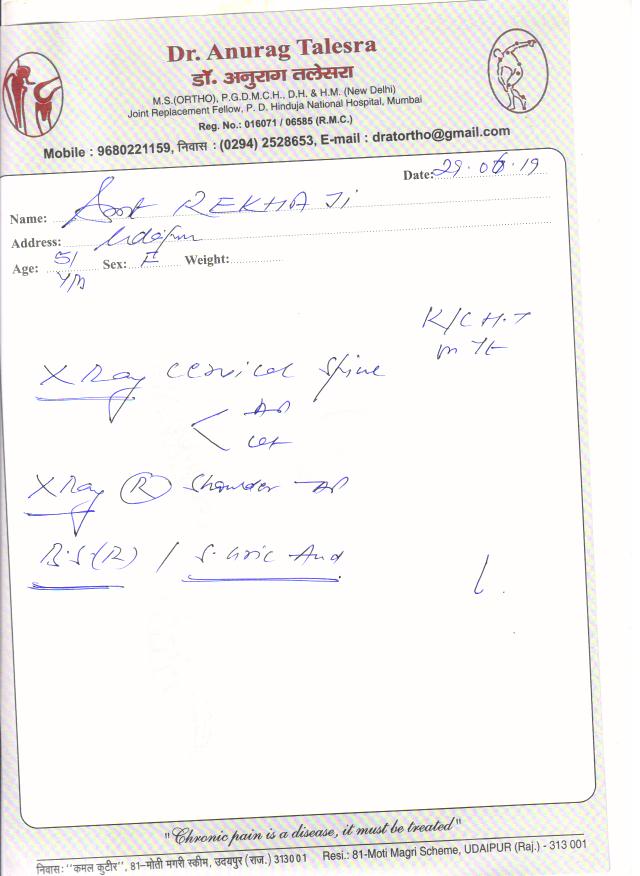 Dr. Anurag Talesra
डॉ. अनुराग तलेसरा
M.S.(ORTHO), P.G.D.M.C.H., D.H. & H.M. (New Delhi)
Joint Replacement Fellow, P. D. Hinduja National Hospital, Mumbai
Reg. No.: 016071 / 06585 (R.M.C.)
Mobile : 9680221159, निवास : (0294) 2528653, E-mail : dratortho@gmail.com
Date: 29.06.19
Name: Smt REKHA Ji
Address: Udaipur
Age: 51 Sex: F Weight:
K/C H.T
X Ray cervical spine
AP
Lat
X Ray (R) Shoulder AP
B.S(R) / S. Uric Acid
"Chronic pain is a disease, it must be treated"
निवास: "कमल कुटीर", 81-मोती मगरी स्कीम, उदयपुर (राज.) 313001 Resi.: 81-Moti Magri Scheme, UDAIPUR (Raj.) - 313 001